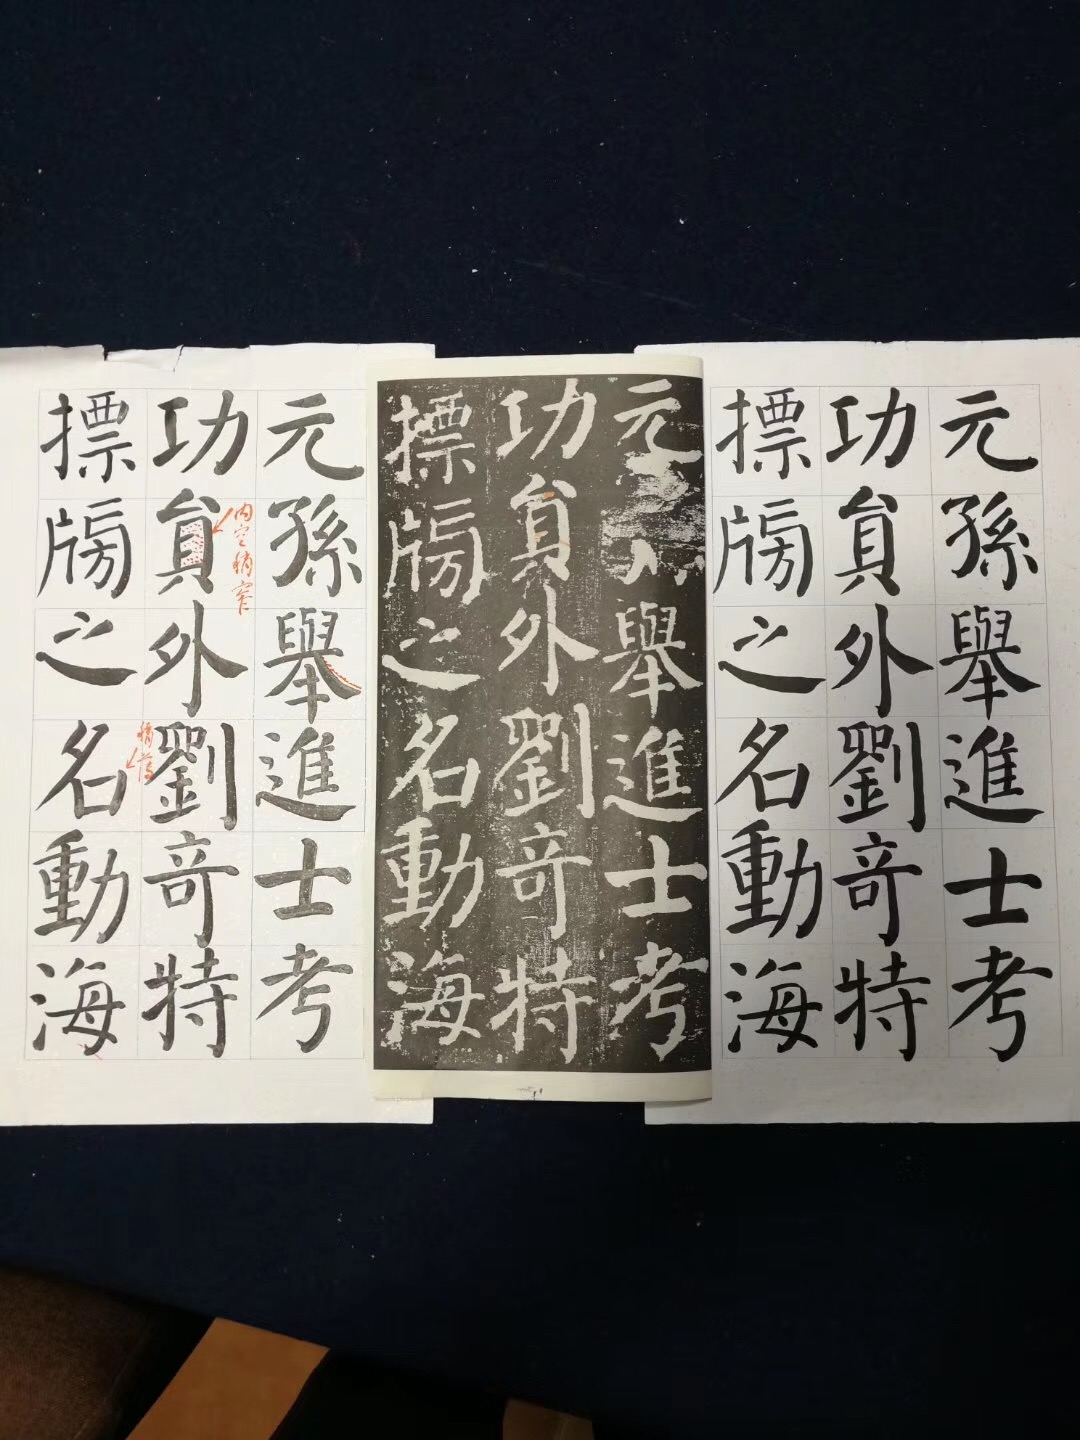 元孫舉進士考
功貟外劉竒特
摽牓之名動海
元舉進士考
功貟外劉竒特
摽牓之名動海
元孫舉進士考
功貟外劉竒特
内空稍窄
摽牓之名動海